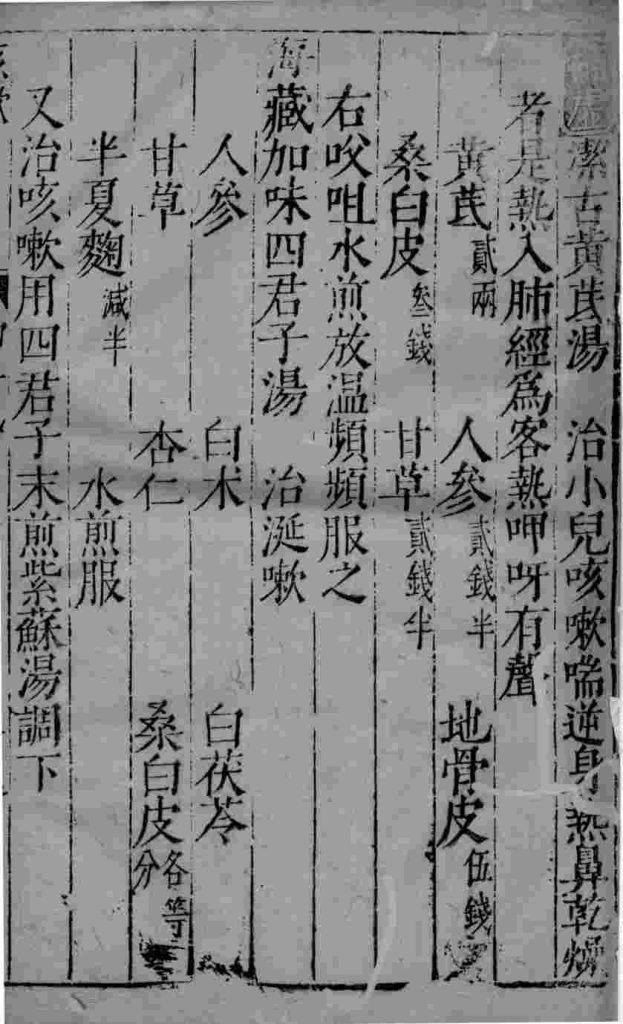 潔古黃芪湯　治小兒咳嗽喘逆身熱鼻乾燥
者是熱入肺經爲客熱呷呀有聲
黃芪貳兩　人參貳錢半　地骨皮伍錢
桑白皮叄錢　甘草貳錢半
右㕮咀水煎放温頻頻服之
海藏加味四君子湯　治涎嗽
人參　白术　白茯苓
甘草　杏仁　桑白皮各等分
半夏麴減半　水煎服
又治咳嗽用四君子末煎紫蘇湯調下